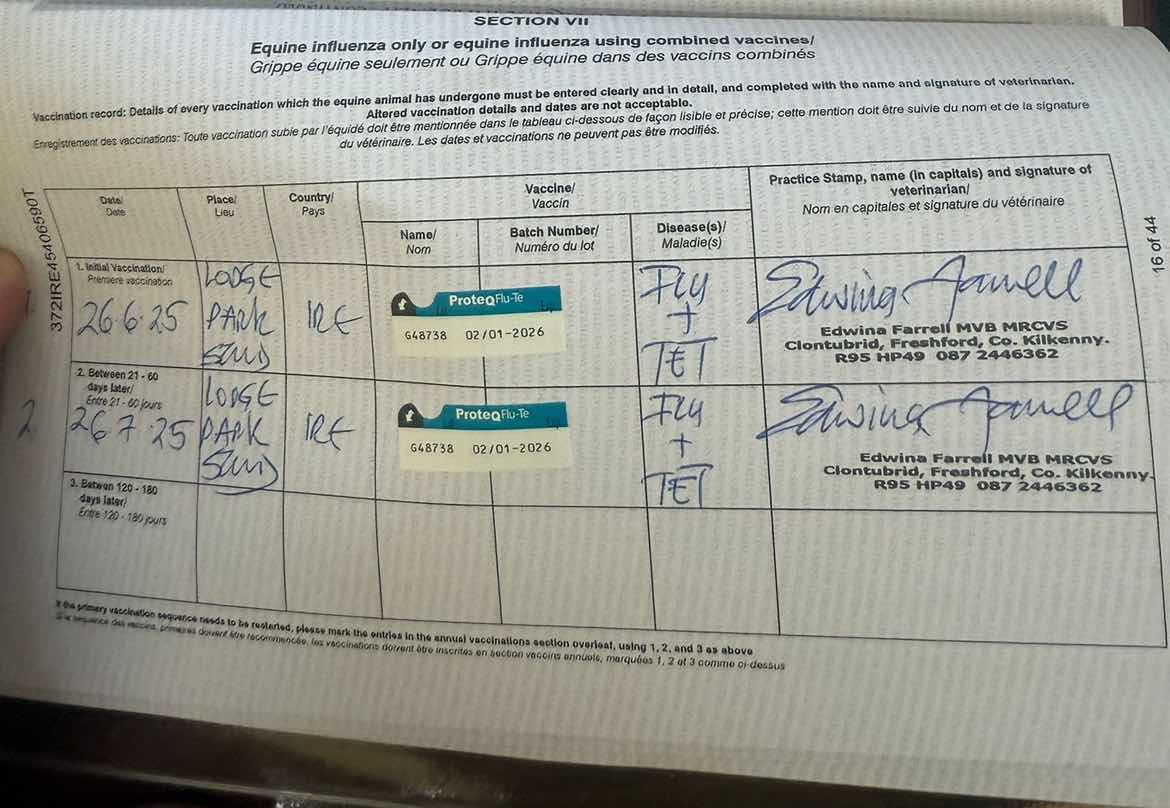 SECTION VII
Equine influenza only or equine influenza using combined vaccines/
Grippe équine seulement ou Grippe équine dans des vaccins combinés
Vaccination record: Details of every vaccination which the equine animal has undergone must be entered clearly and in detail, and completed with the name and signature of veterinarian.
Altered vaccination details and dates are not acceptable.
Enregistrement des vaccinations: Toute vaccination subie par l'équidé doit être mentionnée dans le tableau ci-dessous de façon lisible et précise; cette mention doit être suivie du nom et de la signature
du vétérinaire. Les dates et vaccinations ne peuvent pas être modifiés.
372IRE45406590T
16 of 44
Date/
Date
Place/
Lieu
Country/
Pays
Vaccine/
Vaccin
Name/
Nom
Batch Number/
Numéro du lot
Disease(s)/
Maladie(s)
Practice Stamp, name (in capitals) and signature of
veterinarian/
Nom en capitales et signature du vétérinaire
1.
1. Initial Vaccination/
Première vaccination
26.6.25
LODGE
PARK
STUD
IRE
ProteqFlu-Te
G48738 02/01-2026
FLU
+
TET
Edwina Farrell
Edwina Farrell MVB MRCVS
Clontubrid, Freshford, Co. Kilkenny.
R95 HP49 087 2446362
2
2. Between 21 - 60
days later/
Entre 21 - 60 jours
26.7.25
LODGE
PARK
STUD
IRE
ProteqFlu-Te
G48738 02/01-2026
FLU
+
TET
Edwina Farrell
Edwina Farrell MVB MRCVS
Clontubrid, Freshford, Co. Kilkenny.
R95 HP49 087 2446362
3. Betwen 120 - 180
days later/
Entre 120 - 180 jours
If the primary vaccination sequence needs to be restarted, please mark the entries in the annual vaccinations section overleaf, using 1, 2, and 3 as above
Si la séquence des vaccins primaires doivent être recommencée, les vaccinations doivent être inscrites en section vaccins annuels, marquées 1, 2 et 3 comme ci-dessus